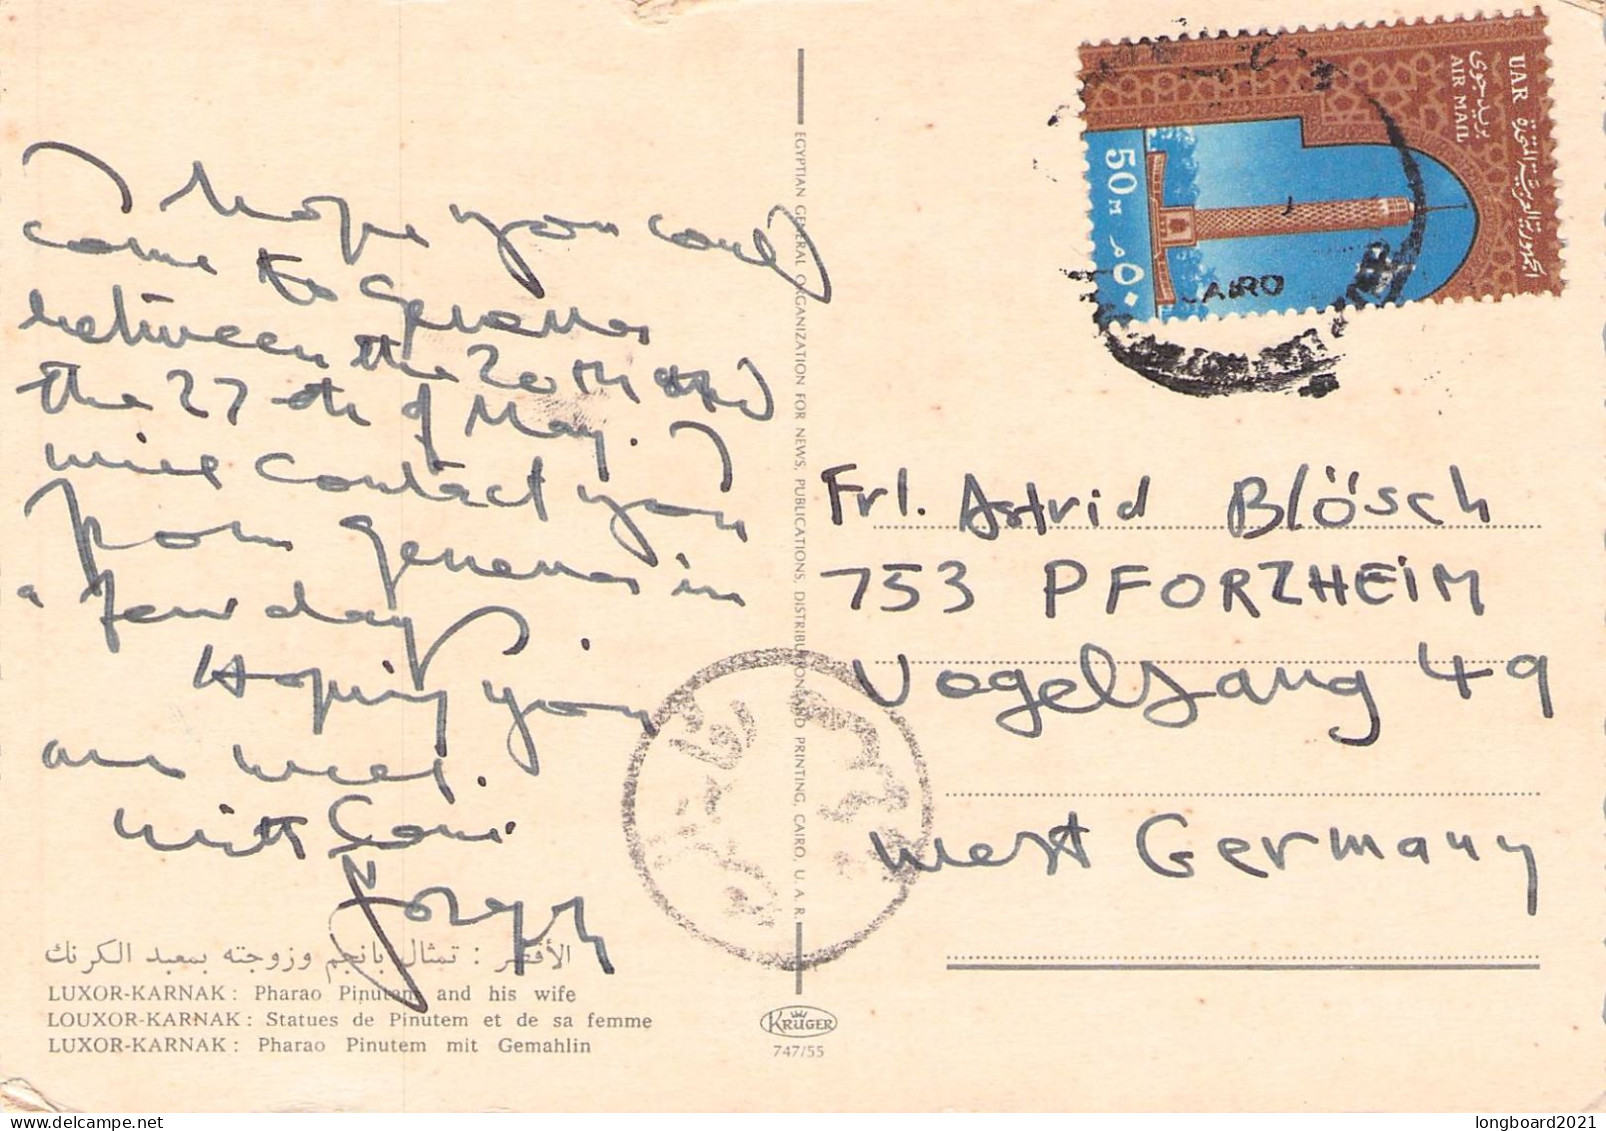 I hope you could
come to Geneva
between the 20th and
the 27th of May. I
will contact you
from Geneva in
a few day
Hoping you
are well.
with Love
الأقصر : تمثال بانجم وزوجته بمعبد الكرنك
LUXOR-KARNAK: Pharao Pinutem and his wife
LOUXOR-KARNAK: Statues de Pinutem et de sa femme
LUXOR-KARNAK: Pharao Pinutem mit Gemahlin
EGYPTIAN GENERAL ORGANIZATION FOR NEWS, PUBLICATIONS, DISTRIBUTION AND PRINTING, CAIRO, U. A. R.
KRÜGER
747/55
UAR الجمهورية العربية المتحدة
بريد جوى
AIR MAIL
50 M ٥٠ م
CAIRO
Frl. Astrid Blösch
753 PFORZHEIM
Vogelsang 49
West Germany
longboard2021